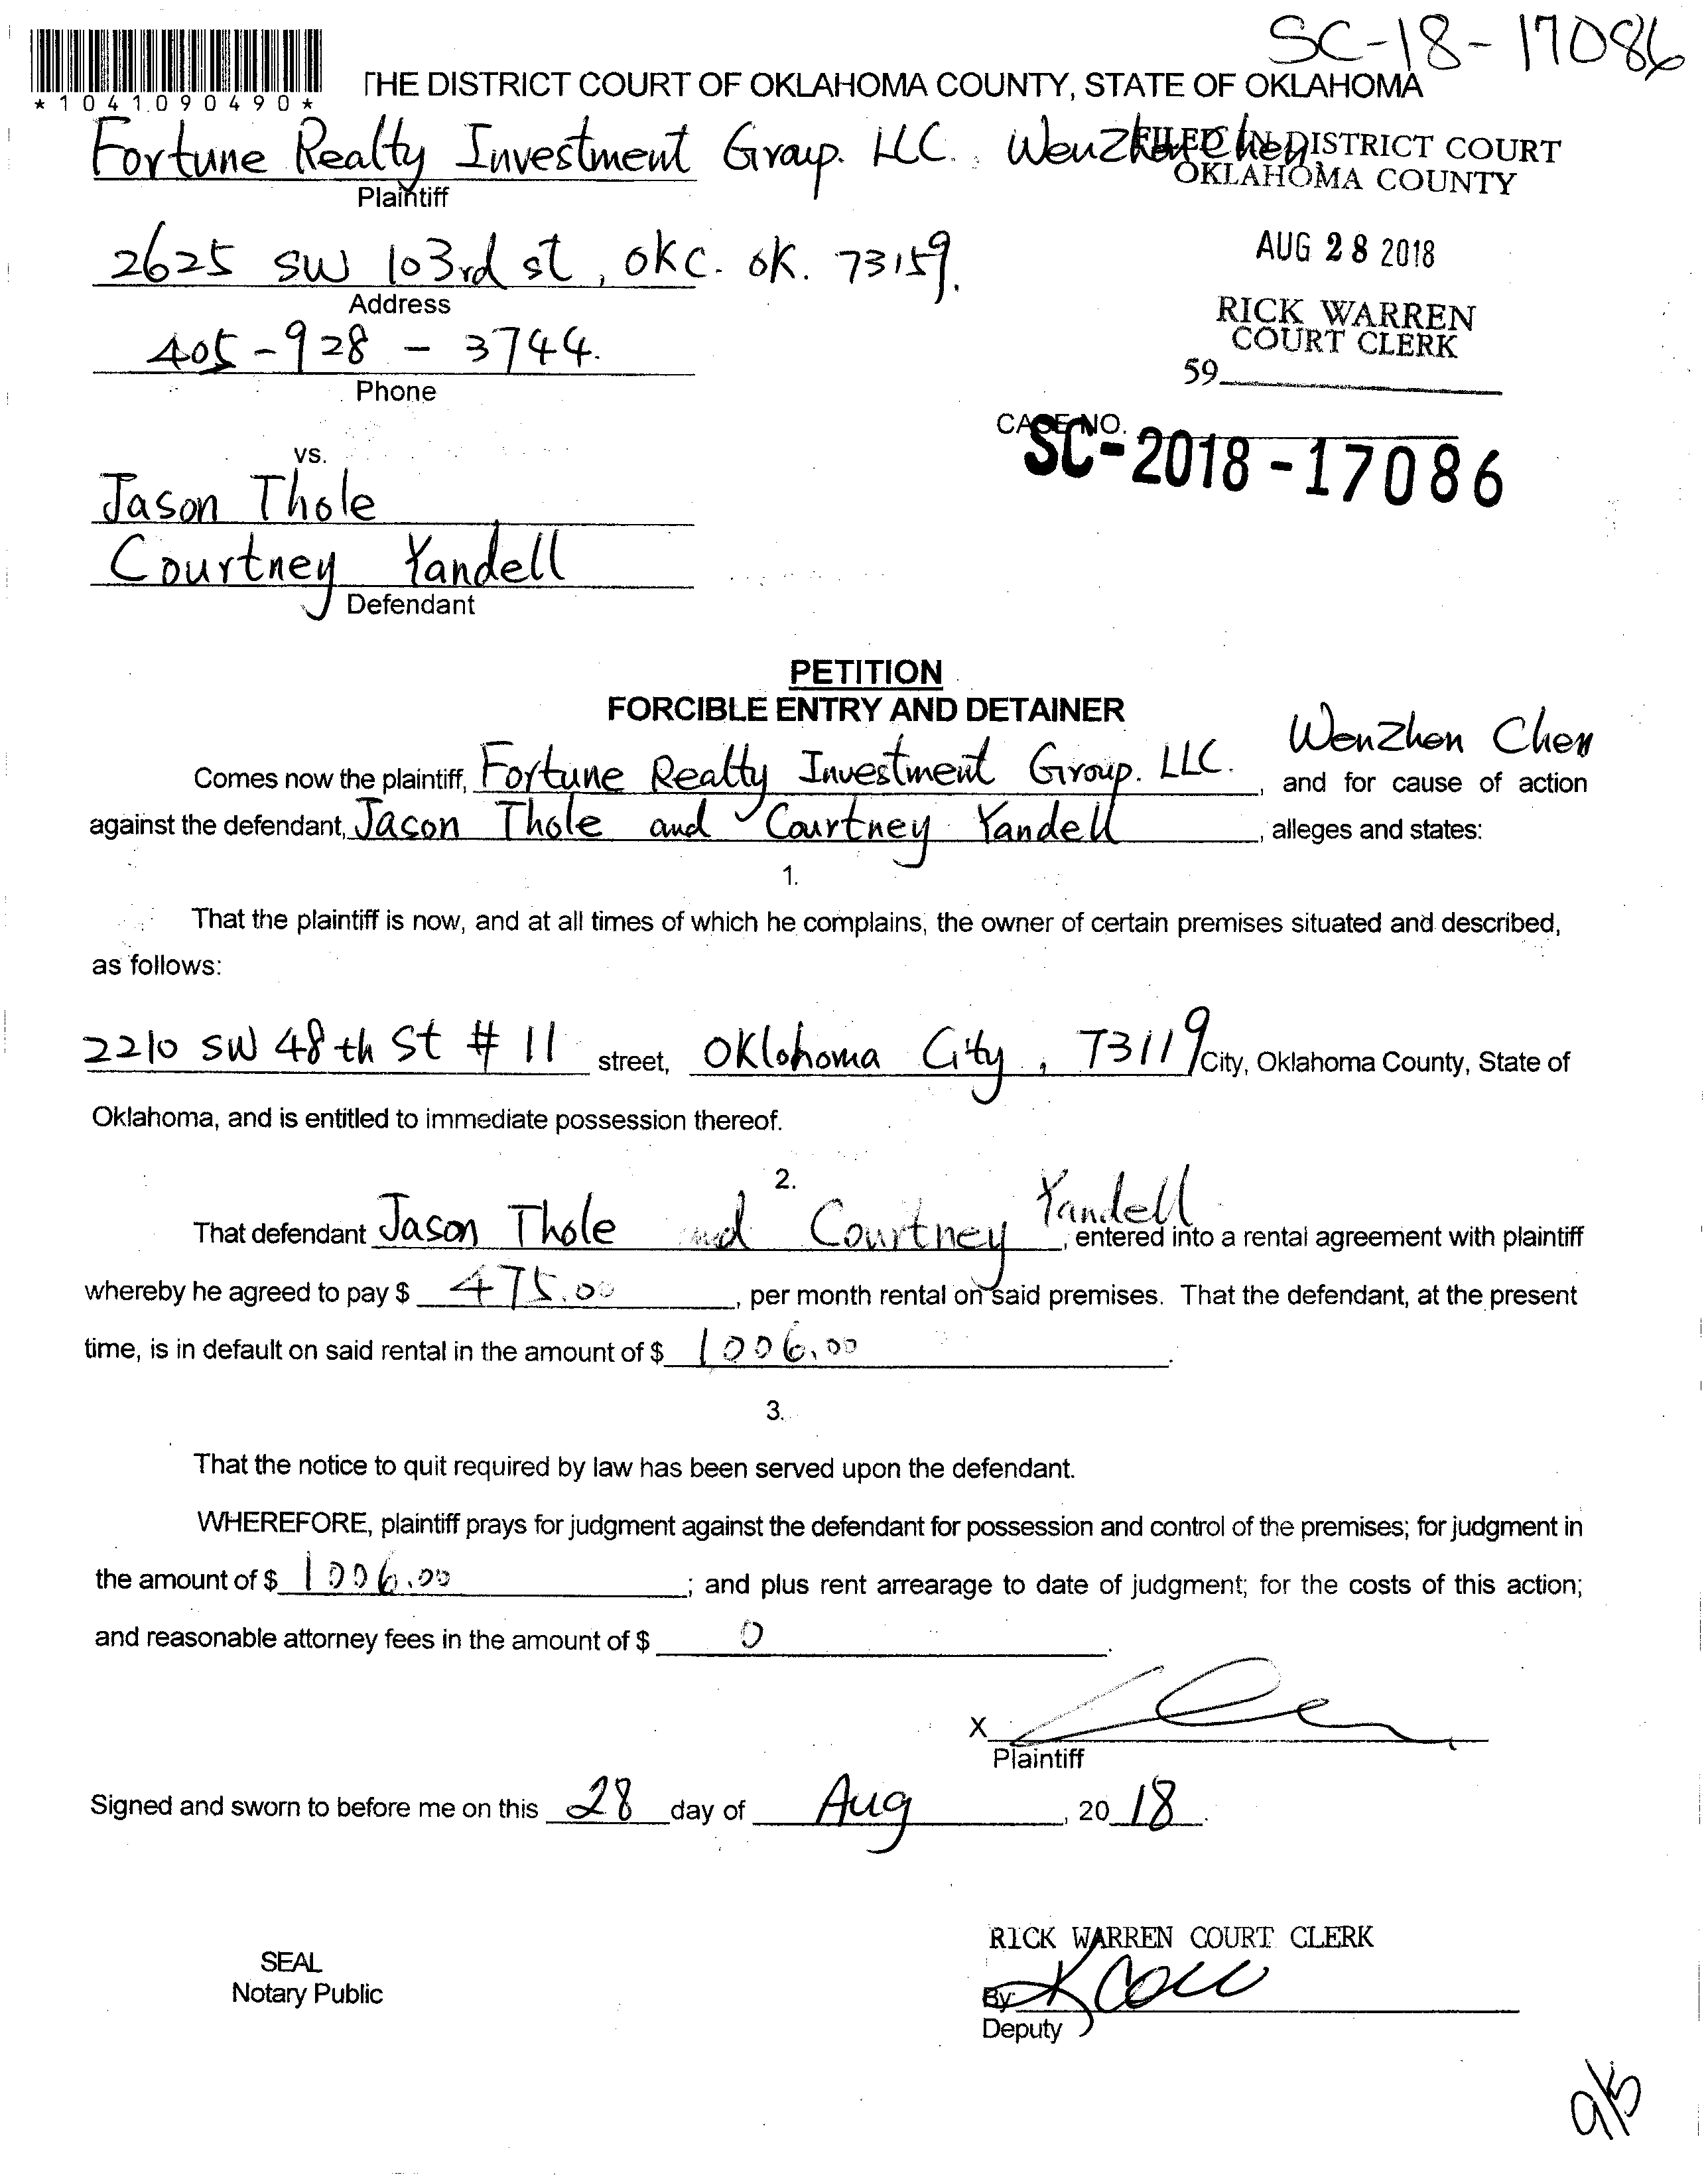 SC-18-17086
*1041090490*
THE DISTRICT COURT OF OKLAHOMA COUNTY, STATE OF OKLAHOMA
Fortune Realty Investment Group. LLC. Wenzhen Chen
Plaintiff
FILED IN DISTRICT COURT
OKLAHOMA COUNTY
2625 SW 103rd st, OKC. OK. 73159.
Address
AUG 28 2018
405-928-3744.
Phone
RICK WARREN
COURT CLERK
59
CASE NO.
SC-2018-17086
vs.
Jason Thole
Courtney Yandell
Defendant
PETITION
FORCIBLE ENTRY AND DETAINER
Wenzhen Chen
Comes now the plaintiff, Fortune Realty Investment Group. LLC. , and for cause of action
against the defendant, Jason Thole and Courtney Yandell , alleges and states:
1.
That the plaintiff is now, and at all times of which he complains, the owner of certain premises situated and described,
as follows:
2210 SW 48th St # 11 street, Oklohoma City, 73119 City, Oklahoma County, State of
Oklahoma, and is entitled to immediate possession thereof.
2.
That defendant Jason Thole and Courtney Yandell , entered into a rental agreement with plaintiff
whereby he agreed to pay $ 475.00 , per month rental on said premises. That the defendant, at the present
time, is in default on said rental in the amount of $ 1006.00 .
3.
That the notice to quit required by law has been served upon the defendant.
WHEREFORE, plaintiff prays for judgment against the defendant for possession and control of the premises; for judgment in
the amount of $ 1006.00 ; and plus rent arrearage to date of judgment; for the costs of this action;
and reasonable attorney fees in the amount of $ 0 .
X
Plaintiff
Signed and sworn to before me on this 28 day of Aug , 20 18 .
RICK WARREN COURT CLERK
SEAL
Notary Public
By
Deputy
9/5